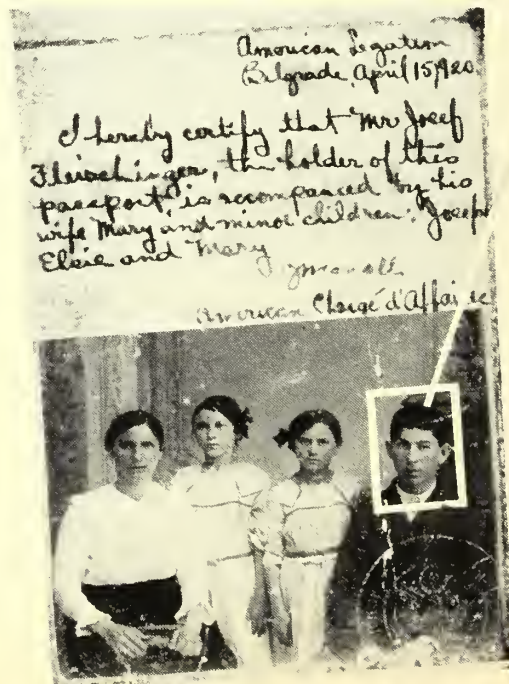 American Legation
Belgrade, April 15, 1920.
I hereby certify that Mr Josef
Fleischinger, the holder of this
passport, is accompanied by his
wife Mary and minor children: Joseph
Elsie and Mary
American Chargé d'Affaires